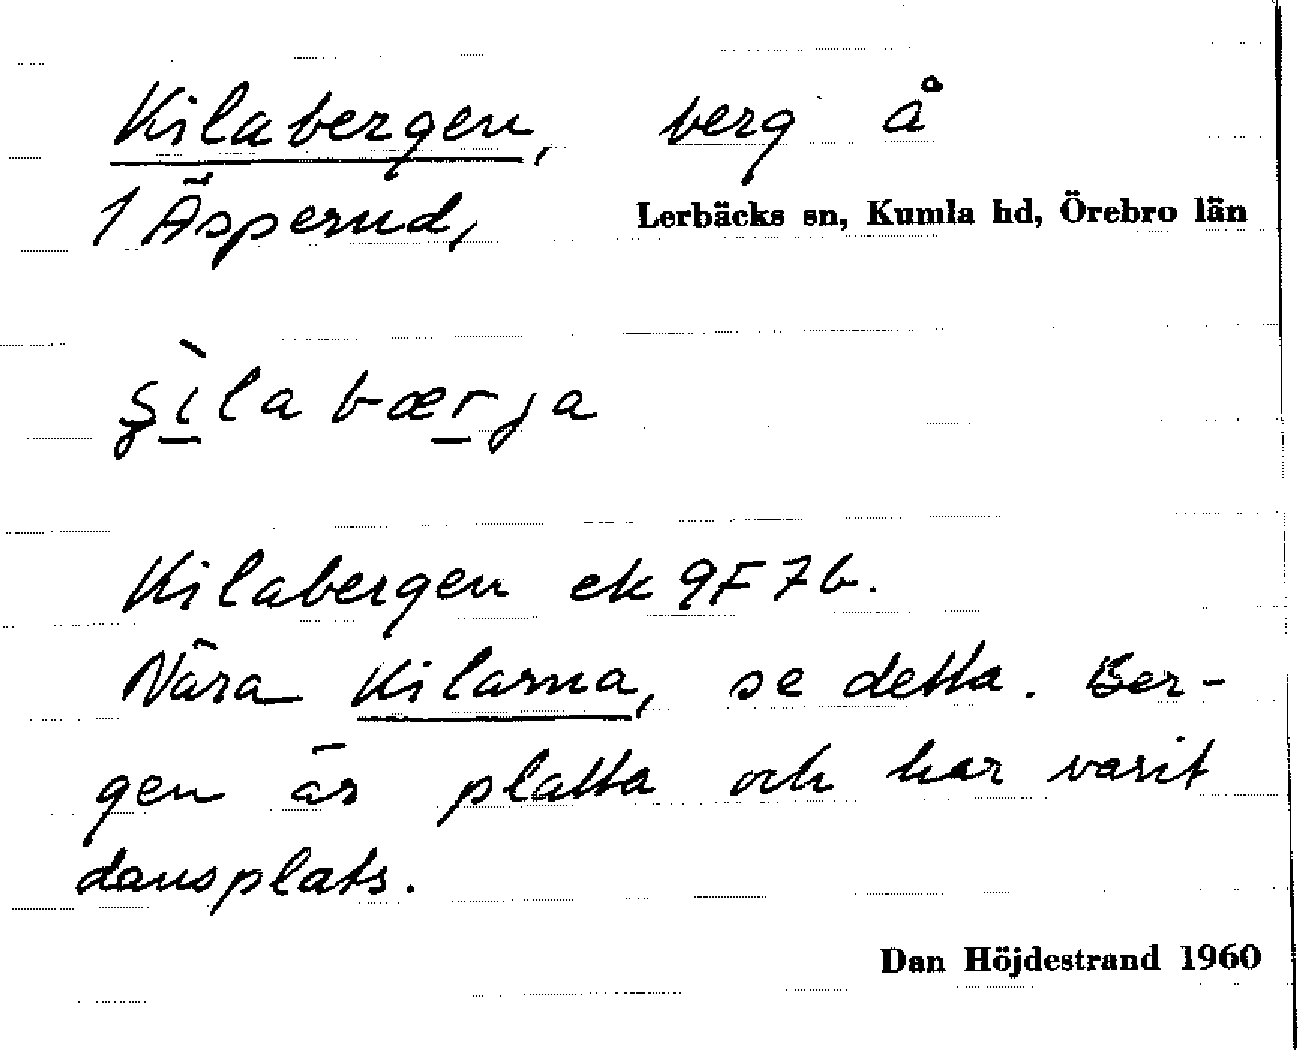 Kilabergen, berg å
1 Äsperud, Lerbäcks sn, Kumla hd, Örebro län
Kilabergen ek 9F7b.
Nära Kilarna, se detta. Ber-
gen är platta och har varit
dansplats.
Dan Höjdestrand 1960